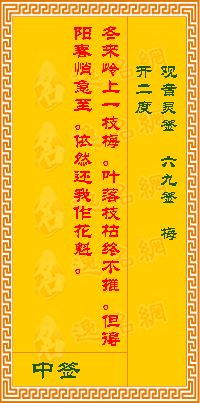 观音灵签 六九签 梅
开二度
冬来岭上一枝梅。叶落枝枯终不摧。但得
阳春悄急至。依然还我作花魁。
中签